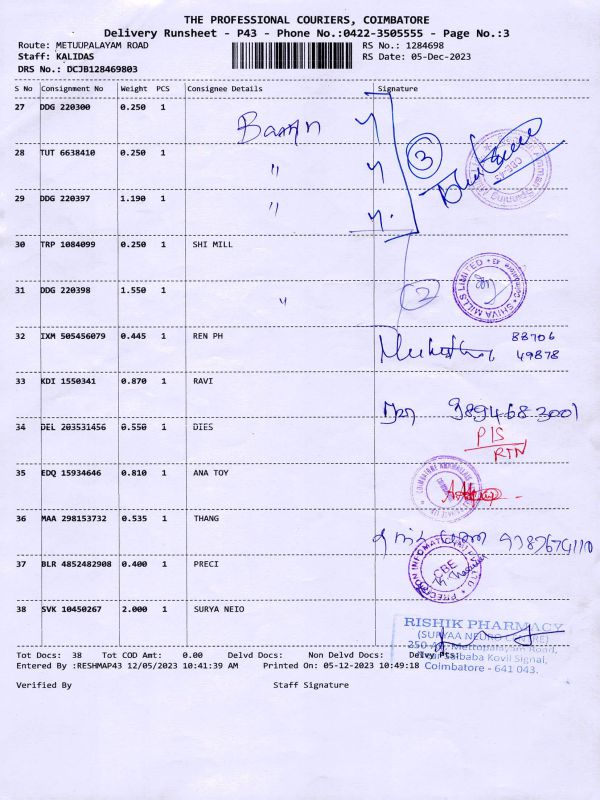 THE PROFESSIONAL COURIERS, COIMBATORE
Delivery Runsheet - P43 - Phone No.:0422-3505555 - Page No.:3
Route: METUUPALAYAM ROAD RS No.: 1284698
Staff: KALIDAS RS Date: 05-Dec-2023
DRS No.: DCJB128469803
S No Consignment No Weight PCS Consignee Details Signature
27 DDG 220300 0.250 1
28 TUT 6638410 0.250 1 "
3
29 DDG 220397 1.190 1 "
30 TRP 1084099 0.250 1 SHI MILL
SHIVA MILLS LIMITED
31 DDG 220398 1.550 1 " 2
32 IXM 505456079 0.445 1 REN PH 88706
49878
33 KDI 1550341 0.870 1 RAVI
9894683001
34 DEL 203531456 0.550 1 DIES P/S
RTN
35 EDQ 15934646 0.810 1 ANA TOY
36 MAA 298153732 0.535 1 THANG
37 BLR 4852482908 0.400 1 PRECI CBE
38 SVK 10450267 2.000 1 SURYA NEIO
RISHIK PHARMACY
(SURYAA NEURO CENTRE)
Mettupalayam Road,
Saibaba Kovil Signal,
Coimbatore - 641 043.
Tot Docs: 38 Tot COD Amt: 0.00 Delvd Docs: Non Delvd Docs: Delvy
Entered By :RESHMAP43 12/05/2023 10:41:39 AM Printed On: 05-12-2023 10:49:18
Verified By Staff Signature